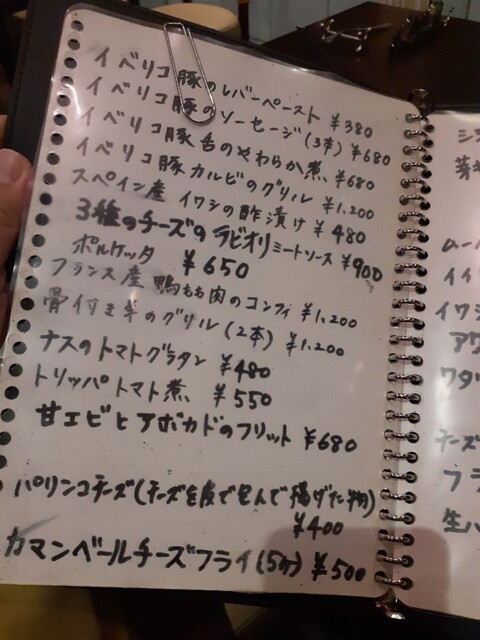 イベリコ豚のレバーペースト ¥380
イベリコ豚のソーセージ(3本) ¥680
イベリコ豚舌のやわらか煮 ¥680
イベリコ豚カルビのグリル ¥1,200
スペイン産 イワシの酢漬け ¥480
3種のチーズのラビオリ ミートソース ¥900
ポルケッタ ¥650
フランス産 鴨もも肉のコンフィ ¥1,200
骨付き羊のグリル(2本) ¥1,200
ナスのトマトグラタン ¥480
トリッパトマト煮 ¥550
甘エビとアボカドのフリット ¥680
パリンコチーズ(チーズを皮で包んで揚げた物)
¥400
カマンベールチーズフライ(5ケ) ¥500
ムー
イイ
イワシ
アワ
ワタ
チーズ
フラ
生ハ